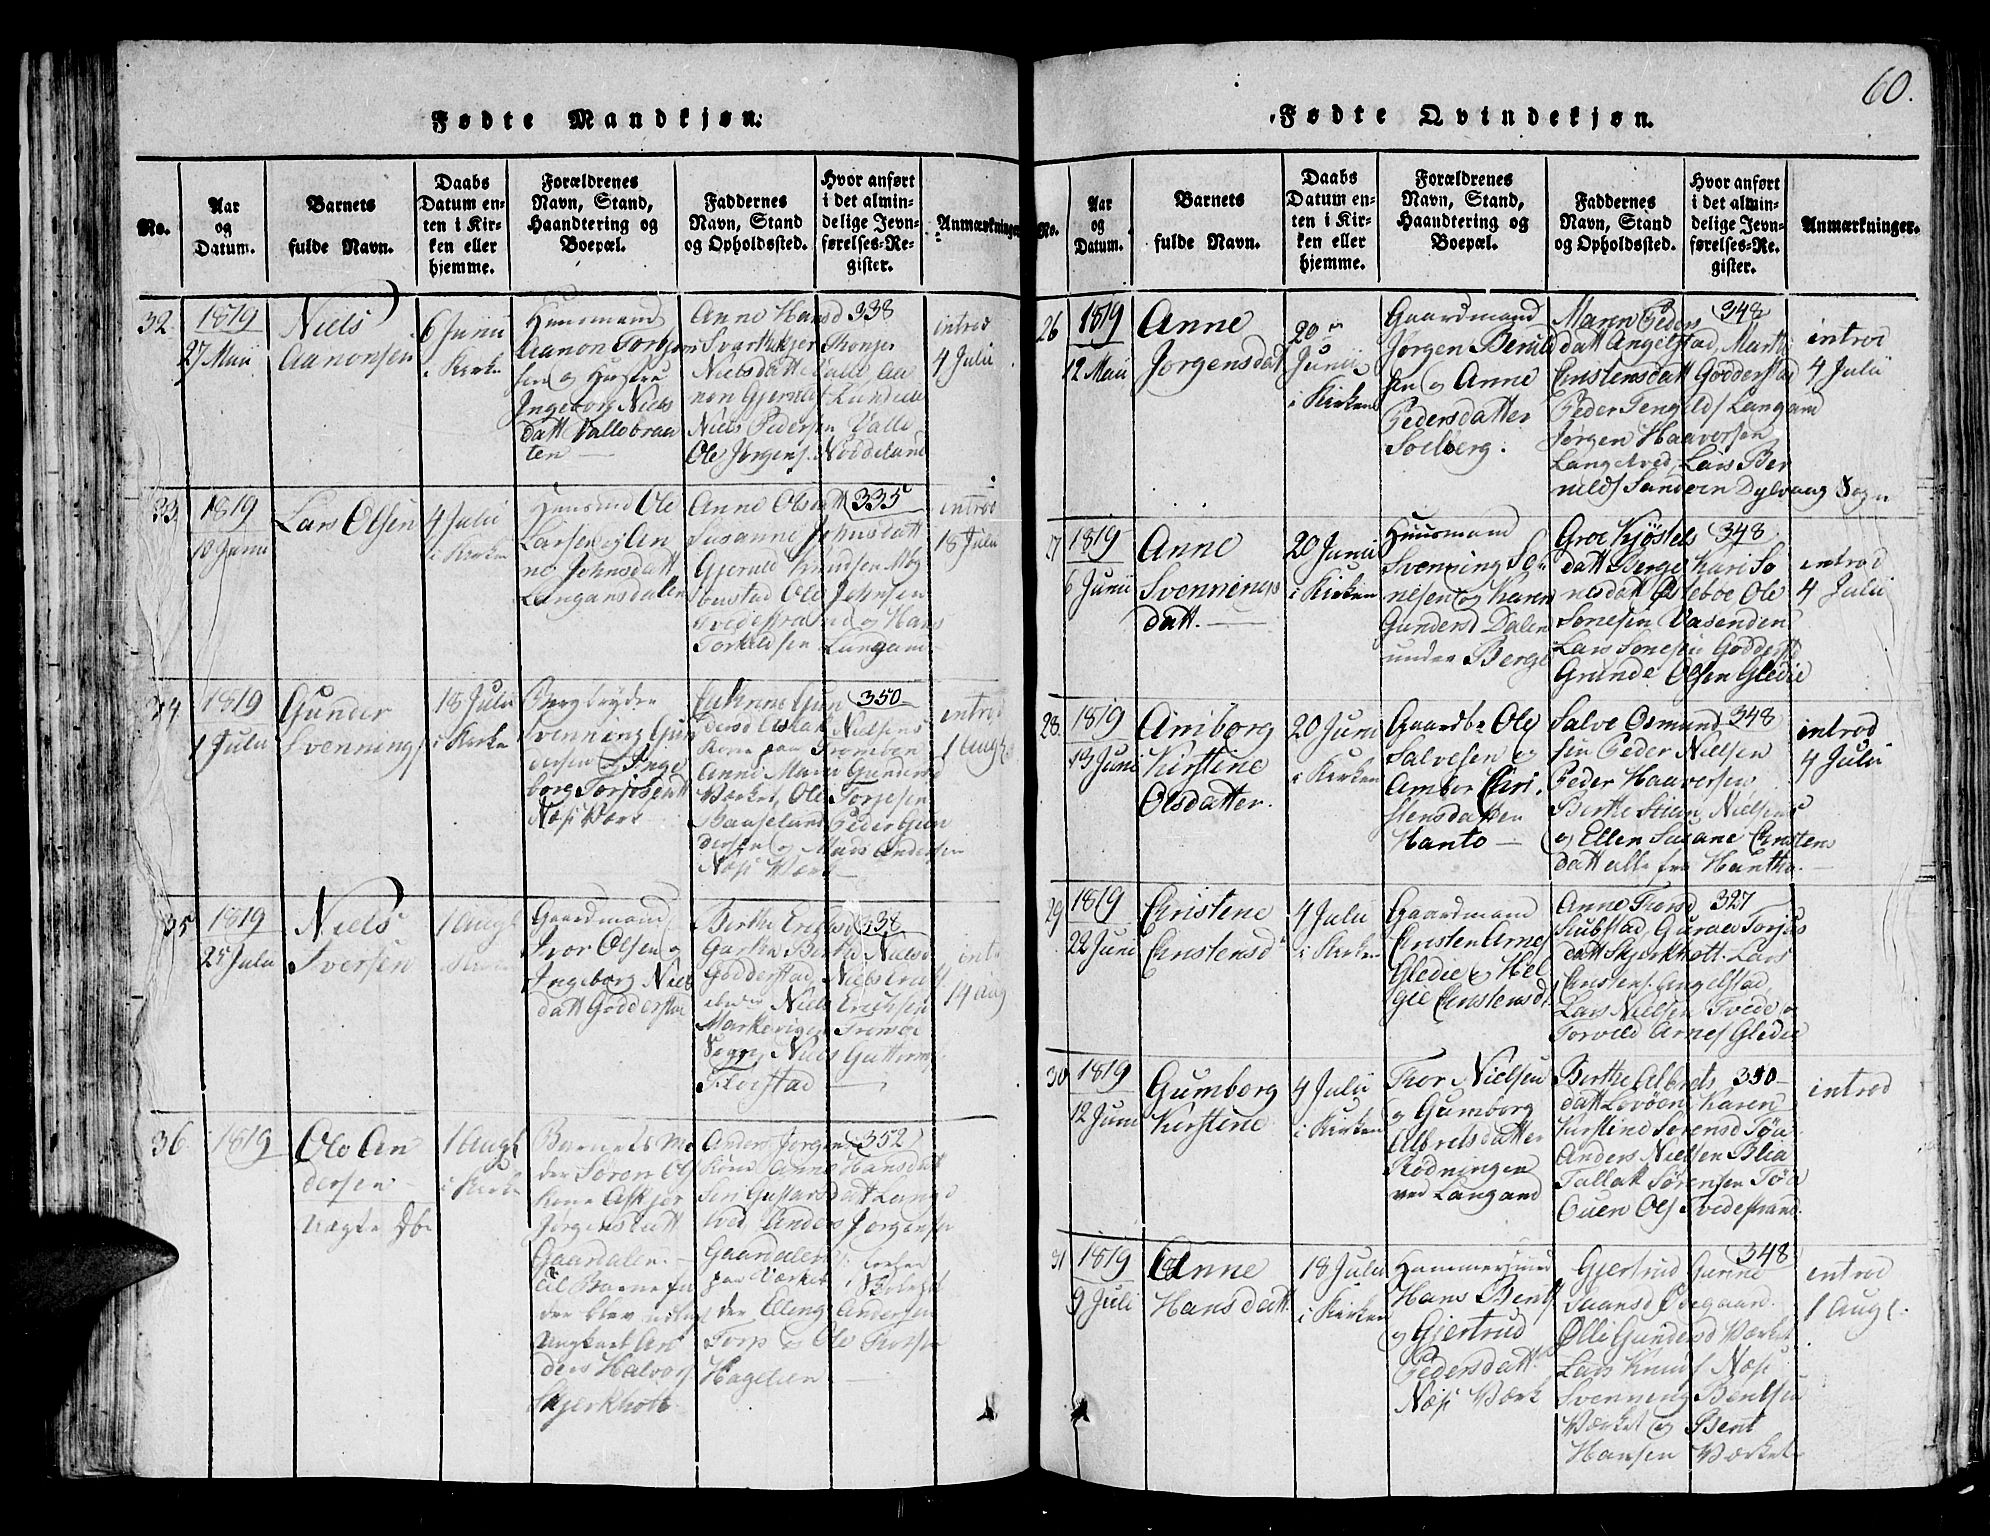 60.
Fødte Mandkjøn.
No.
Aar
og
Datum.
Barnets
fulde Navn.
Daabs
Datum en-
ten i Kir-
ken eller
hjemme.
Forældrenes
Navn, Stand,
Haandtering og
Boepæl.
Faddernes
Navn, Stand
og Opholdssted.
Hvor anført
i det almin-
delige Jevn-
førelses-Re-
gister.
Anmærkninger
32.
1819
27 Maii
Niels
Aanonsen
6 Junii
i Kirke
Huusmand
Aanon Torbjørn
sen og Hustru
Ingeborg Niels
datt Vallebraa
ten
Anne Hansd 338
Svartekjer
Nielsdatt Valle Aa
non Gjerulds Lunde
Niels Pedersen Valle
Ole Jørgens. Nøddelund
introd
4 Julii
33
1819
10 Junii
Lars Olsen
4 Julii
i Kirke
Huusmd Ole
Larsen og An
ne Johnsdatt
Langansdalen
Anne Olsdatt 335
Susanne Johnsdatt
Gjeruld Knudsen Møg
bustad Ole Johnsen
Tvedestrand og Hans
Torkildsen Langan
introd
18 Julii
34
1819
1 Julii
Gunder
Svennings
18 Julii
i Kirke
Svenning Gun
dersen og Inge
borg Torjusdatt
Næss Værk
350
Kone paa
Anne Maria Gundersd
Værket, Ole Torjesen
Baaseland Peder Gun
dersen og Mads Andersen
Næss Værk
introd
1 Aug
35
1819
25 Julii
Niels
Iversen
1 Aug
Gaardmand
Ivor Olsen og
Ingeborg Niels
datt Godderstad
Berthe Ericksd 338
Garthe Berthe Nielsd
Godderstad, Niels
Niels Ericksen
Markevigen Tromøe
Sogn, Niels Guttorms
Fløistad
14 Aug
36
1819
Ole An
dersen
uægte
1 Aug
i Kirke
Barnets Mo
der Søren Ols
Kone Asbjør
Jørgensdatt
Gaardalen
til Barnefa
der blev udlagt
Ungkarl An
ders Halvors
Skjerkholt
Anders Jørgens 352
Kone Anne Hansdatt
Siri Gustavsdatt Lang
tved Anders Jørgensen
Gaardalen
paa Værket
der Elling Andersen
Torp og Ole Thorsen
Hagelien
Fødte Qvindekjøn.
No.
Aar
og
Datum.
Barnets
fulde Navn.
Daabs
Datum en-
ten i Kir-
ken eller
hjemme.
Forældrenes
Navn, Stand,
Haandtering og
Boepæl.
Faddernes
Navn, Stand
og Opholdssted.
Hvor anført
i det almin-
delige Jevn-
førelses-Re-
gister.
Anmærkninger.
26
1819
12 Maii
Anne
Jørgensdatt
20
Junii
i Kirken
Gaardmand
Jørgen Beruld
sen og Anne
Pedersdatter
Solberg.
Maren Peders 348
datt Angelstad, Marthe
Cristensdatt Godderstad
Peder Tengelds Langand
Jørgen Haaversen
Langetved, Lars Ber
nilds Sandven Dylvaag Sogn
introd
4 Julii
27
1819
6 Junii
Anne
Svennings
datt.
20 Junii
i Kirken
Huusmand
Svenning So
nesen og Karen
Gundersd Dalen
under Berge
Groe Kjøstels 348
datt Berge Kari So
nesdatt Østeboe Ole
Sonesen Vasenden
Lars Sonesen Godderstd
Grunde Olsen Gledie
introd
4 Julii
28.
1819
13 Junii
Amborg
Kirstine
Olsdatter.
20 Juni
i Kirken
Gaardbr Ole
Salvesen og
Amber Chri
stensdatter
Hanto
Salve Osmund 348
sen Peder Nielsen
Peder Haaversen
Berthe Stian Nielsens
og Ellen Susane Christens
datt alle fra Hantho.
introd
4 Julii
29
1819
22 Juni
Christene
Christensd
4 Julii
i Kirken
Gaardmand
Cristen Arnes
Gledie og Hel
gee Christensdt
Anne Thorsd 327
Stubstad, Guroe Torjus
datt Skjerkholt. Lars
Christens. Angelstad,
Lars Nielsen Tvede og
Torvild Arnes Gledie
30
1819
12 Juni
Gumborg
Kirstine
4 Julii
i Kirken
Thor Nielsen
og Gumborg
Albretsdatter
Rødningen
ved Langand
Berthe Albrets 350
datt Lovøen, Karen
Kirstine Sørensd Tøa
Anders Nielsen Blia
Tallak Sørensen Tøa
Ouen Ols Tvedestrand
introd
31
1819
9 Juli
Anne
Hansdatt.
18 Julii
i Kirken
Hammersmed
Hans Bents
og Gjertrud
Pedersdatt
Næss Værk
Gjertrud Gunne 348
Øvegaard.
Ølli Gundersd Værket
Lars Knuds Næss
Svenning Bentsen
Værket og Bent
Hansen Værket
introd
1 Aug.